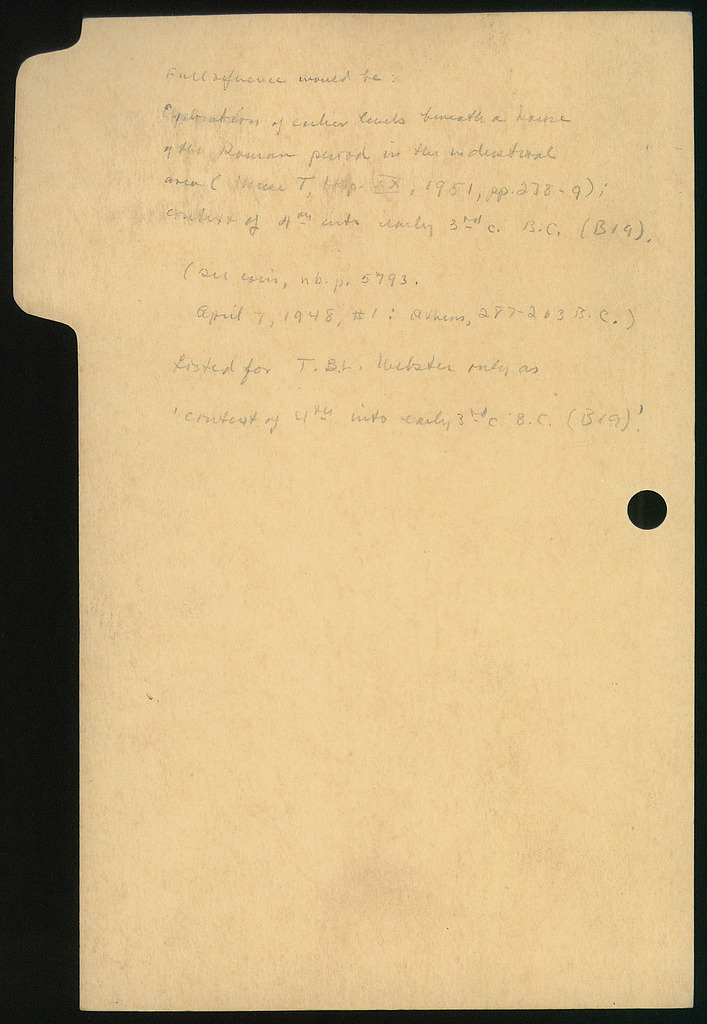 Full reference would be:
Exploration of earlier levels beneath a house
of the Roman period in the industrial
area (House T, Hesp. XX, 1951, pp. 238-9);
context of 4th into early 3rd c. B.C. (B19).
(See coin, nb. p. 5793.
April 7, 1948, #1: Athens, 287-263 B.C.)
Listed for T.B.L. Webster only as
'context of 4th into early 3rd c. B.C. (B19)'.